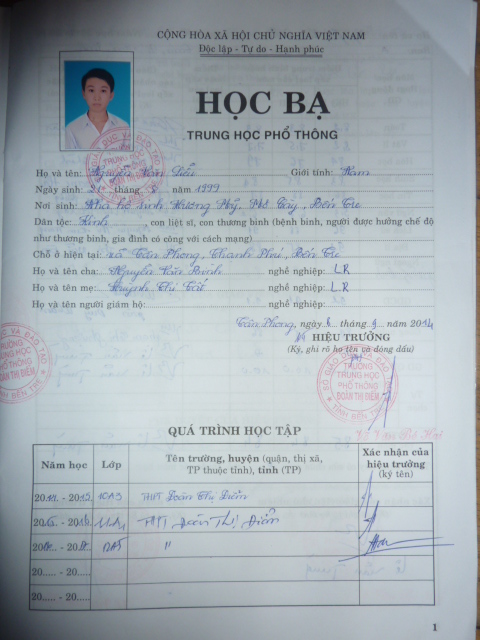 CỘNG HÒA XÃ HỘI CHỦ NGHĨA VIỆT NAM
Độc lập - Tự do - Hạnh phúc
HỌC BẠ
TRUNG HỌC PHỔ THÔNG
Họ và tên: Nguyễn Văn Giới tính: Nam
Ngày sinh: 21 tháng năm 1999
Nơi sinh: Nhà hộ sinh Hương Mỹ, Mỏ Cày, Bến Tre
Dân tộc: Kinh, con liệt sĩ, con thương binh (bệnh binh, người được hưởng chế độ
như thương binh, gia đình có công với cách mạng)
Chỗ ở hiện tại: xã Tân Phong, Thạnh Phú, Bến Tre
Họ và tên cha: Nguyễn Văn nghề nghiệp: LR
Họ và tên mẹ: Huỳnh Thị nghề nghiệp: LR
Họ và tên người giám hộ: nghề nghiệp:
Tân Phong, ngày tháng năm 2014
HIỆU TRƯỞNG
(Ký, ghi rõ họ tên và đóng dấu)
SỞ GIÁO DỤC VÀ ĐÀO TẠO
TRƯỜNG
TRUNG HỌC
PHỔ THÔNG
ĐOÀN THỊ ĐIỂM
TỈNH BẾN TRE
QUÁ TRÌNH HỌC TẬP
Năm học Lớp Tên trường, huyện (quận, thị xã, TP thuộc tỉnh), tỉnh (TP) Xác nhận của hiệu trưởng (ký tên)
2014 - 2015 10A3 THPT Đoàn Thị Điểm
2015 - 2016 11A1 THPT Đoàn Thị Điểm
20 - 20 "
20..... - 20.....
20..... - 20.....
1